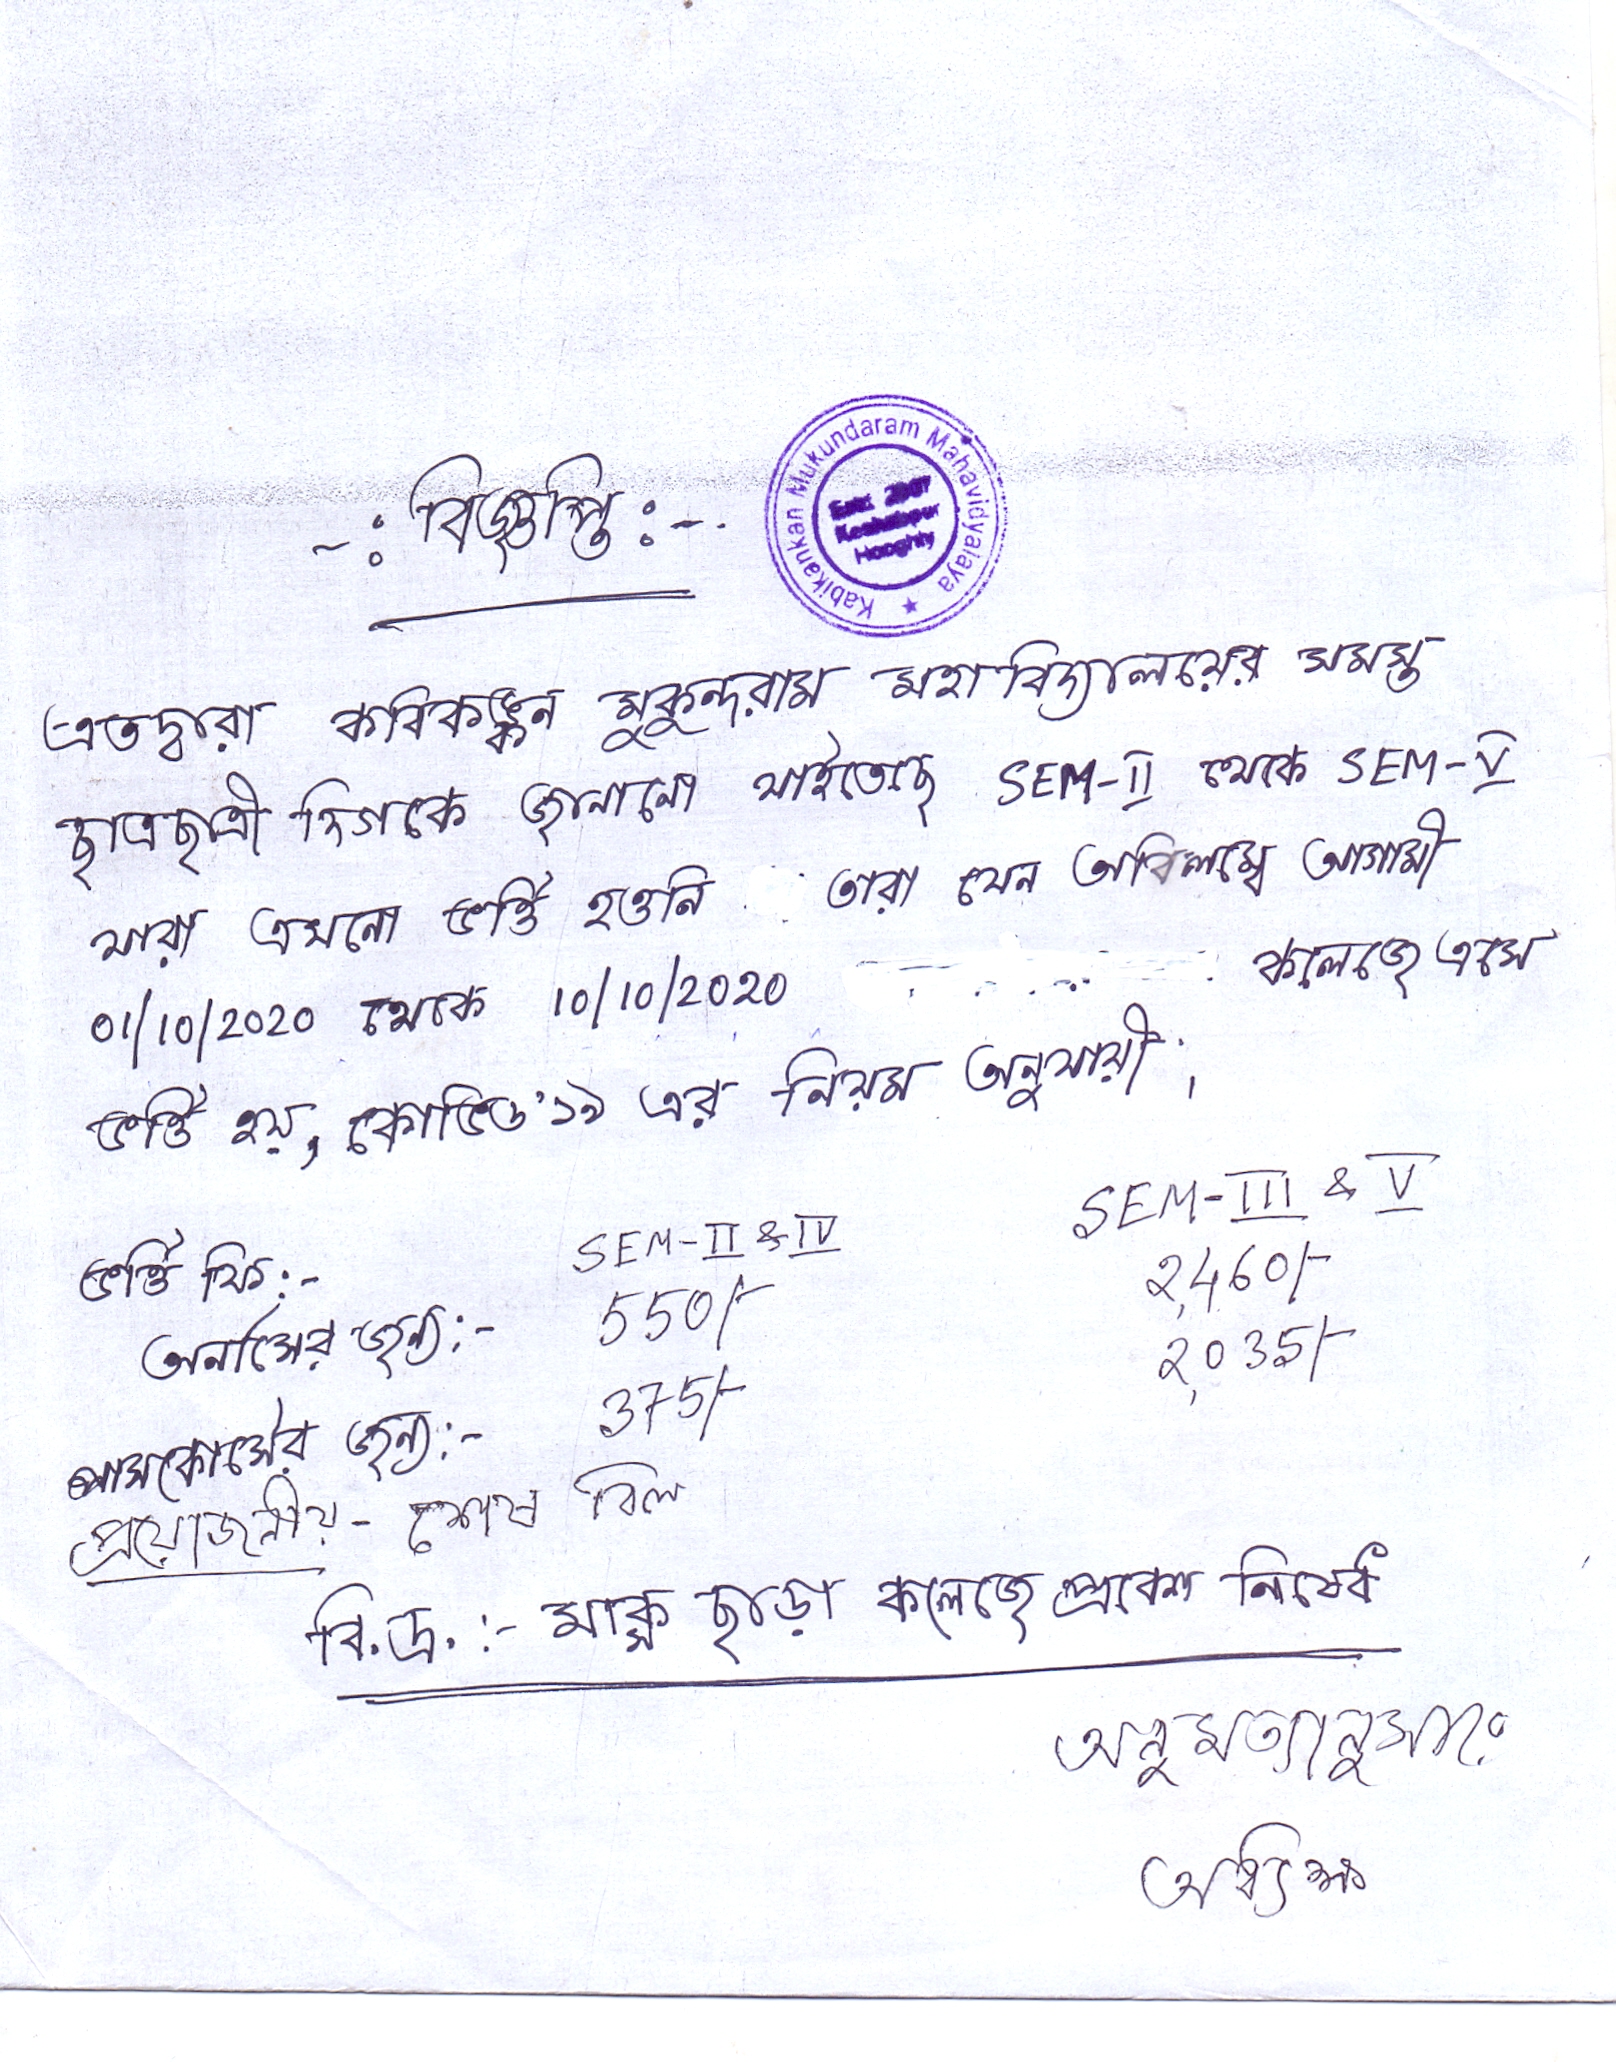 -: বিজ্ঞপ্তি :-
Kabikankan Mukundaram Mahavidyalaya ★
Estd: 2007
Keshabpur
Hooghly
এতদ্বারা কবিকঙ্কন মুকুন্দরাম মহাবিদ্যালয়ের সমস্ত
ছাত্রছাত্রী দিগকে জানানো যাইতেছে SEM-II থেকে SEM-V
যারা এখনো ভর্ত্তি হওনি তারা যেন অবিলম্বে আগামী
01/10/2020 থেকে 10/10/2020 কলেজে এসে
ভর্ত্তি হয়, কোভিড'১৯ এর নিয়ম অনুযায়ী;
ভর্ত্তি ফি:- SEM-II & IV SEM-III & V
অনার্সের জন্য:- 550/- 2,460/-
পাসকোর্সের জন্য:- 375/- 2,035/-
প্রয়োজনীয় - শেষ বিল
বি.দ্র. :- মাস্ক ছাড়া কলেজে প্রবেশ নিষেধ
অনুমত্যানুসারে
অধ্যক্ষ